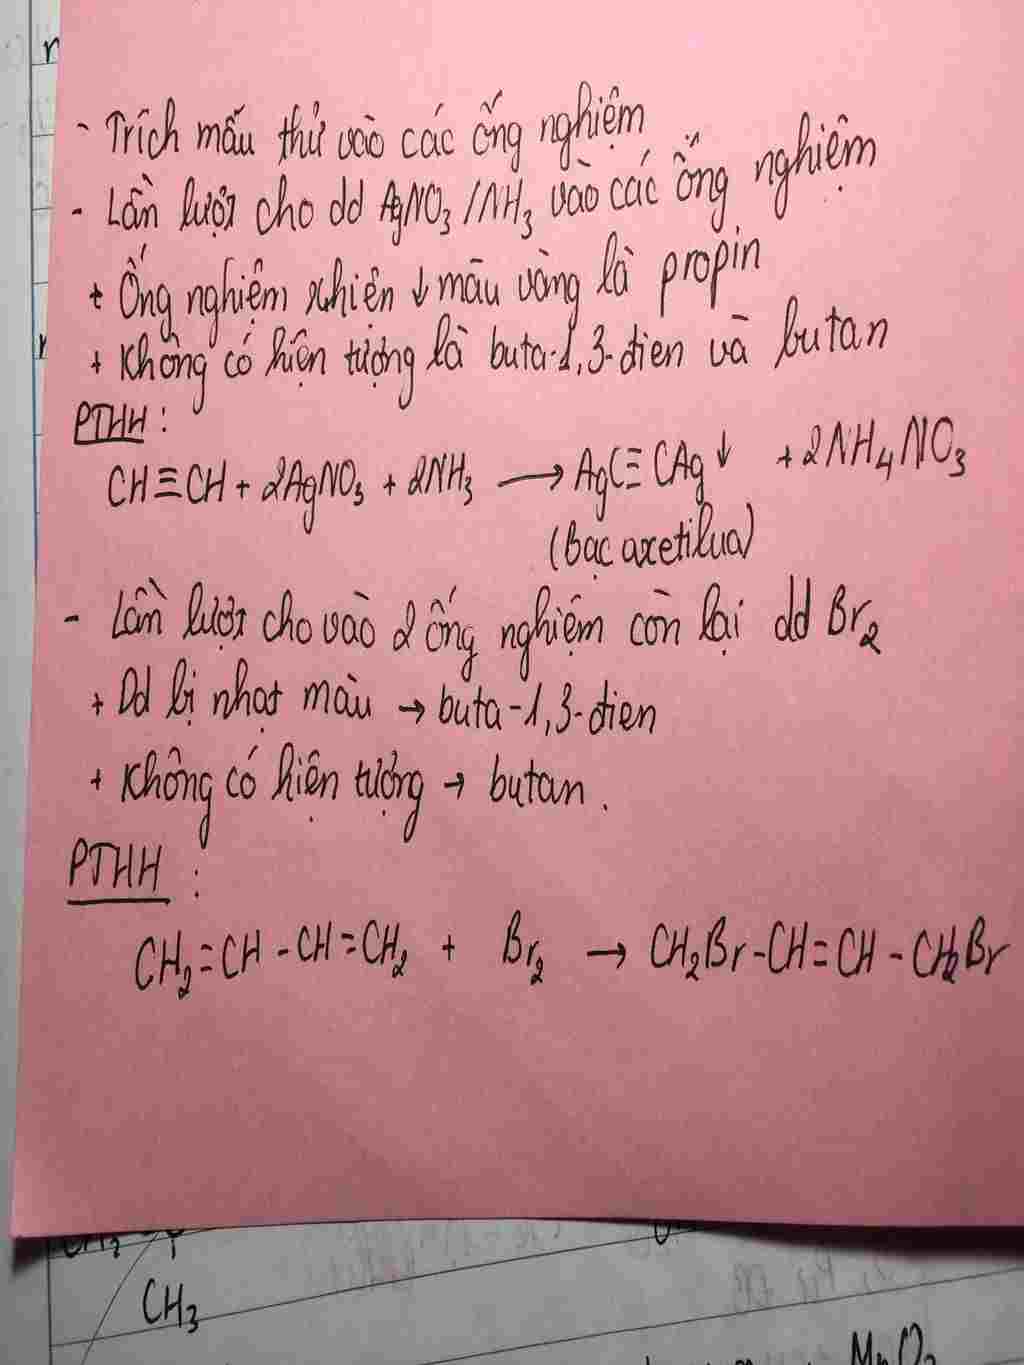 - Trích mẫu thử vào các ống nghiệm
- Lần lượt cho dd AgNO3/NH3 vào các ống nghiệm
+ Ống nghiệm xhiện ↓ màu vàng là propin
+ Không có hiện tượng là buta-1,3-đien và butan
PTHH:
CH≡CH + 2AgNO3 + 2NH3 → AgC≡CAg↓ + 2NH4NO3
(bạc axetilua)
- Lần lượt cho vào 2 ống nghiệm còn lại dd Br2
+ Dd bị nhạt màu → buta-1,3-đien
+ Không có hiện tượng → butan.
PTHH:
CH2=CH-CH=CH2 + Br2 → CH2Br-CH=CH-CH2Br
CH3